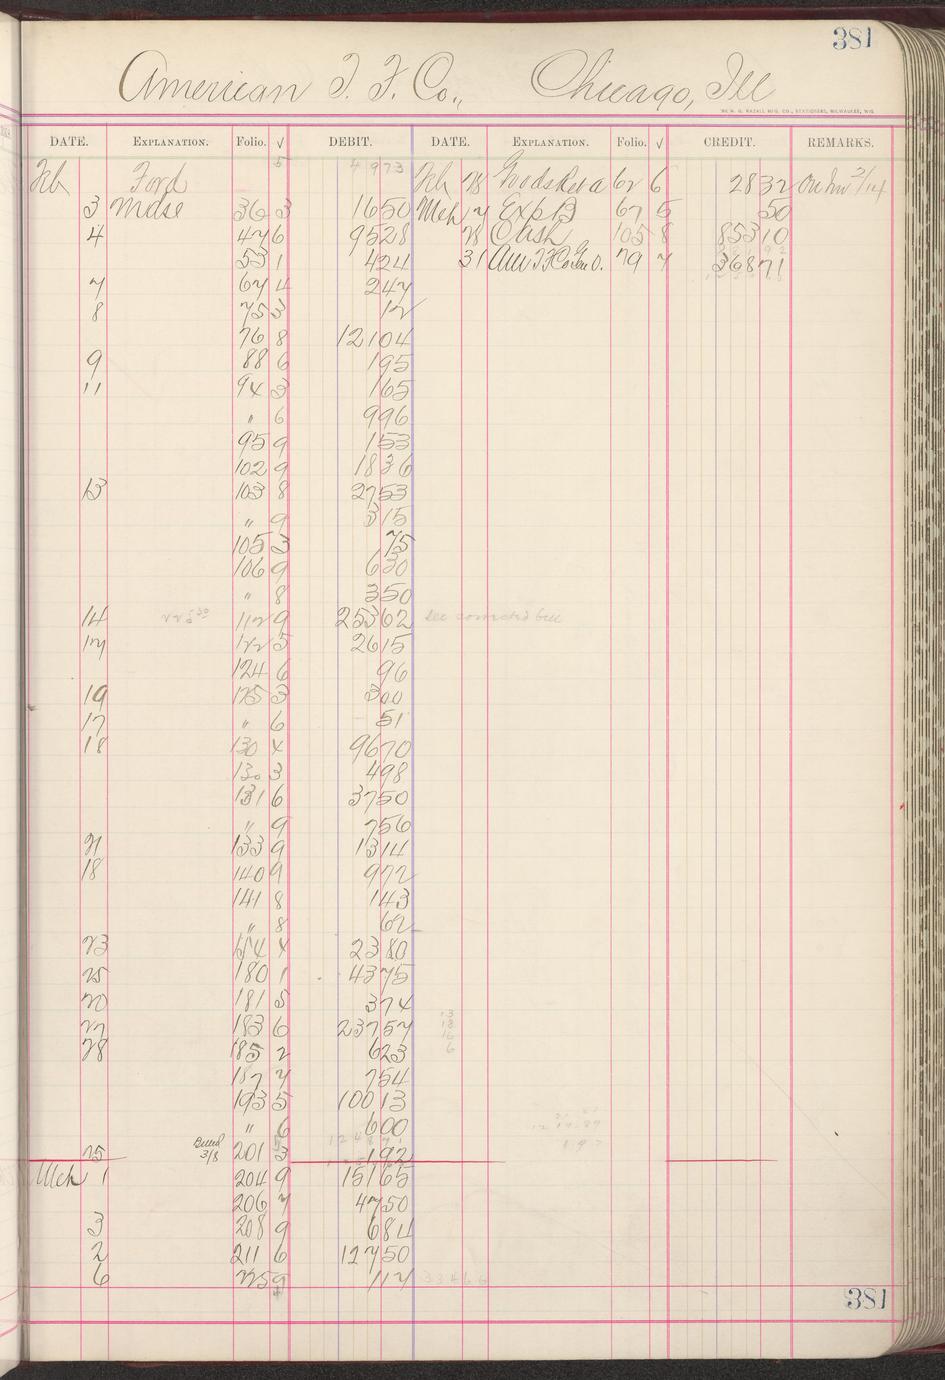 381
American T. F. Co., Chicago, Ill
WM. G. RAZALL MFG. CO., STATIONERS, MILWAUKEE, WIS.
DATE. EXPLANATION. Folio. √ DEBIT. DATE. EXPLANATION. Folio. √ CREDIT. REMARKS.
Feb Ford 4973 Feb 28 Goods Reta 62 6 2832 On Inv 2/14
3 Mdse 36 3 1650 Mch 7 Exp B 67 5 50
4 47 6 9528 28 Cash 105 8 85310
53 1 424 31 79 7 36871
7 67 4 247
8 75 3 12
76 8 12104
9 88 6 195
11 94 3 165
" 6 996
95 9 153
102 9 1836
13 103 8 2753
" 9 315
105 3 75
106 9 630
" 8 350
14 112 9 25362 see corrected bill
17 122 5 2615
124 6 96
19 125 3 300
17 " 6 51
18 130 4 9670
130 3 498
131 6 3750
" 9 756
21 133 9 1314
18 140 9 972
141 8 143
" 8 62
23 154 4 2380
25 180 1 4375
20 181 5 374
27 183 6 23757
28 185 2 623
187 7 754
193 5 10013
" 6 600
25 Billed 3/8 201 3 192
Mch 1 204 9 15165
206 7 4750
3 208 9 684
2 211 6 12750
6 225 9 117 33466
381